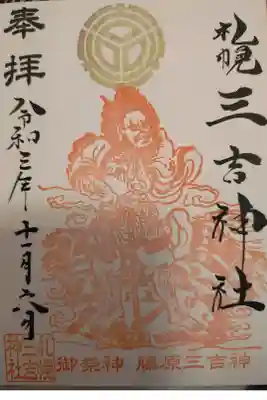 札幌三吉神社
奉拝
令和三年十一月六日
御祭神 藤原三吉神
札幌三吉神社